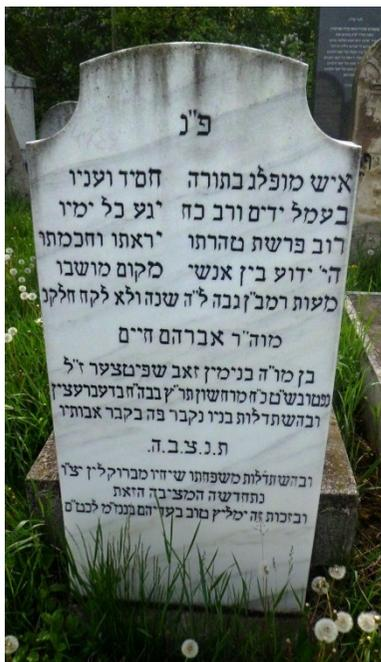 פ"נ
איש מופלג בתורה חסיד ועניו
בעמל ידים ורב כח יגע כל ימיו
רוב פרשת טהרתו יראתו וחכמתו
הי' ידוע בין אנשי מקום מושבו
מעות רמב"ן גבה ל"ה שנה ולא לקח חלקנ
מוה"ר אברהם חיים
בן מו"ה בנימין זאב שפיטצער ז"ל
נפטר בש"ט נ"ח מרחשון תר"ץ בבה"ח בדעברעצין
ובהשתדלות בניו נקבר פה בקבר אבותיו
ת.נ.צ.ב.ה.
ובהשתדלות משפחתו שיחיו מברוקלין יצ"ו
נתחדשה המציבה הזאת
ובזכות זה ימליץ טוב בעדיהם